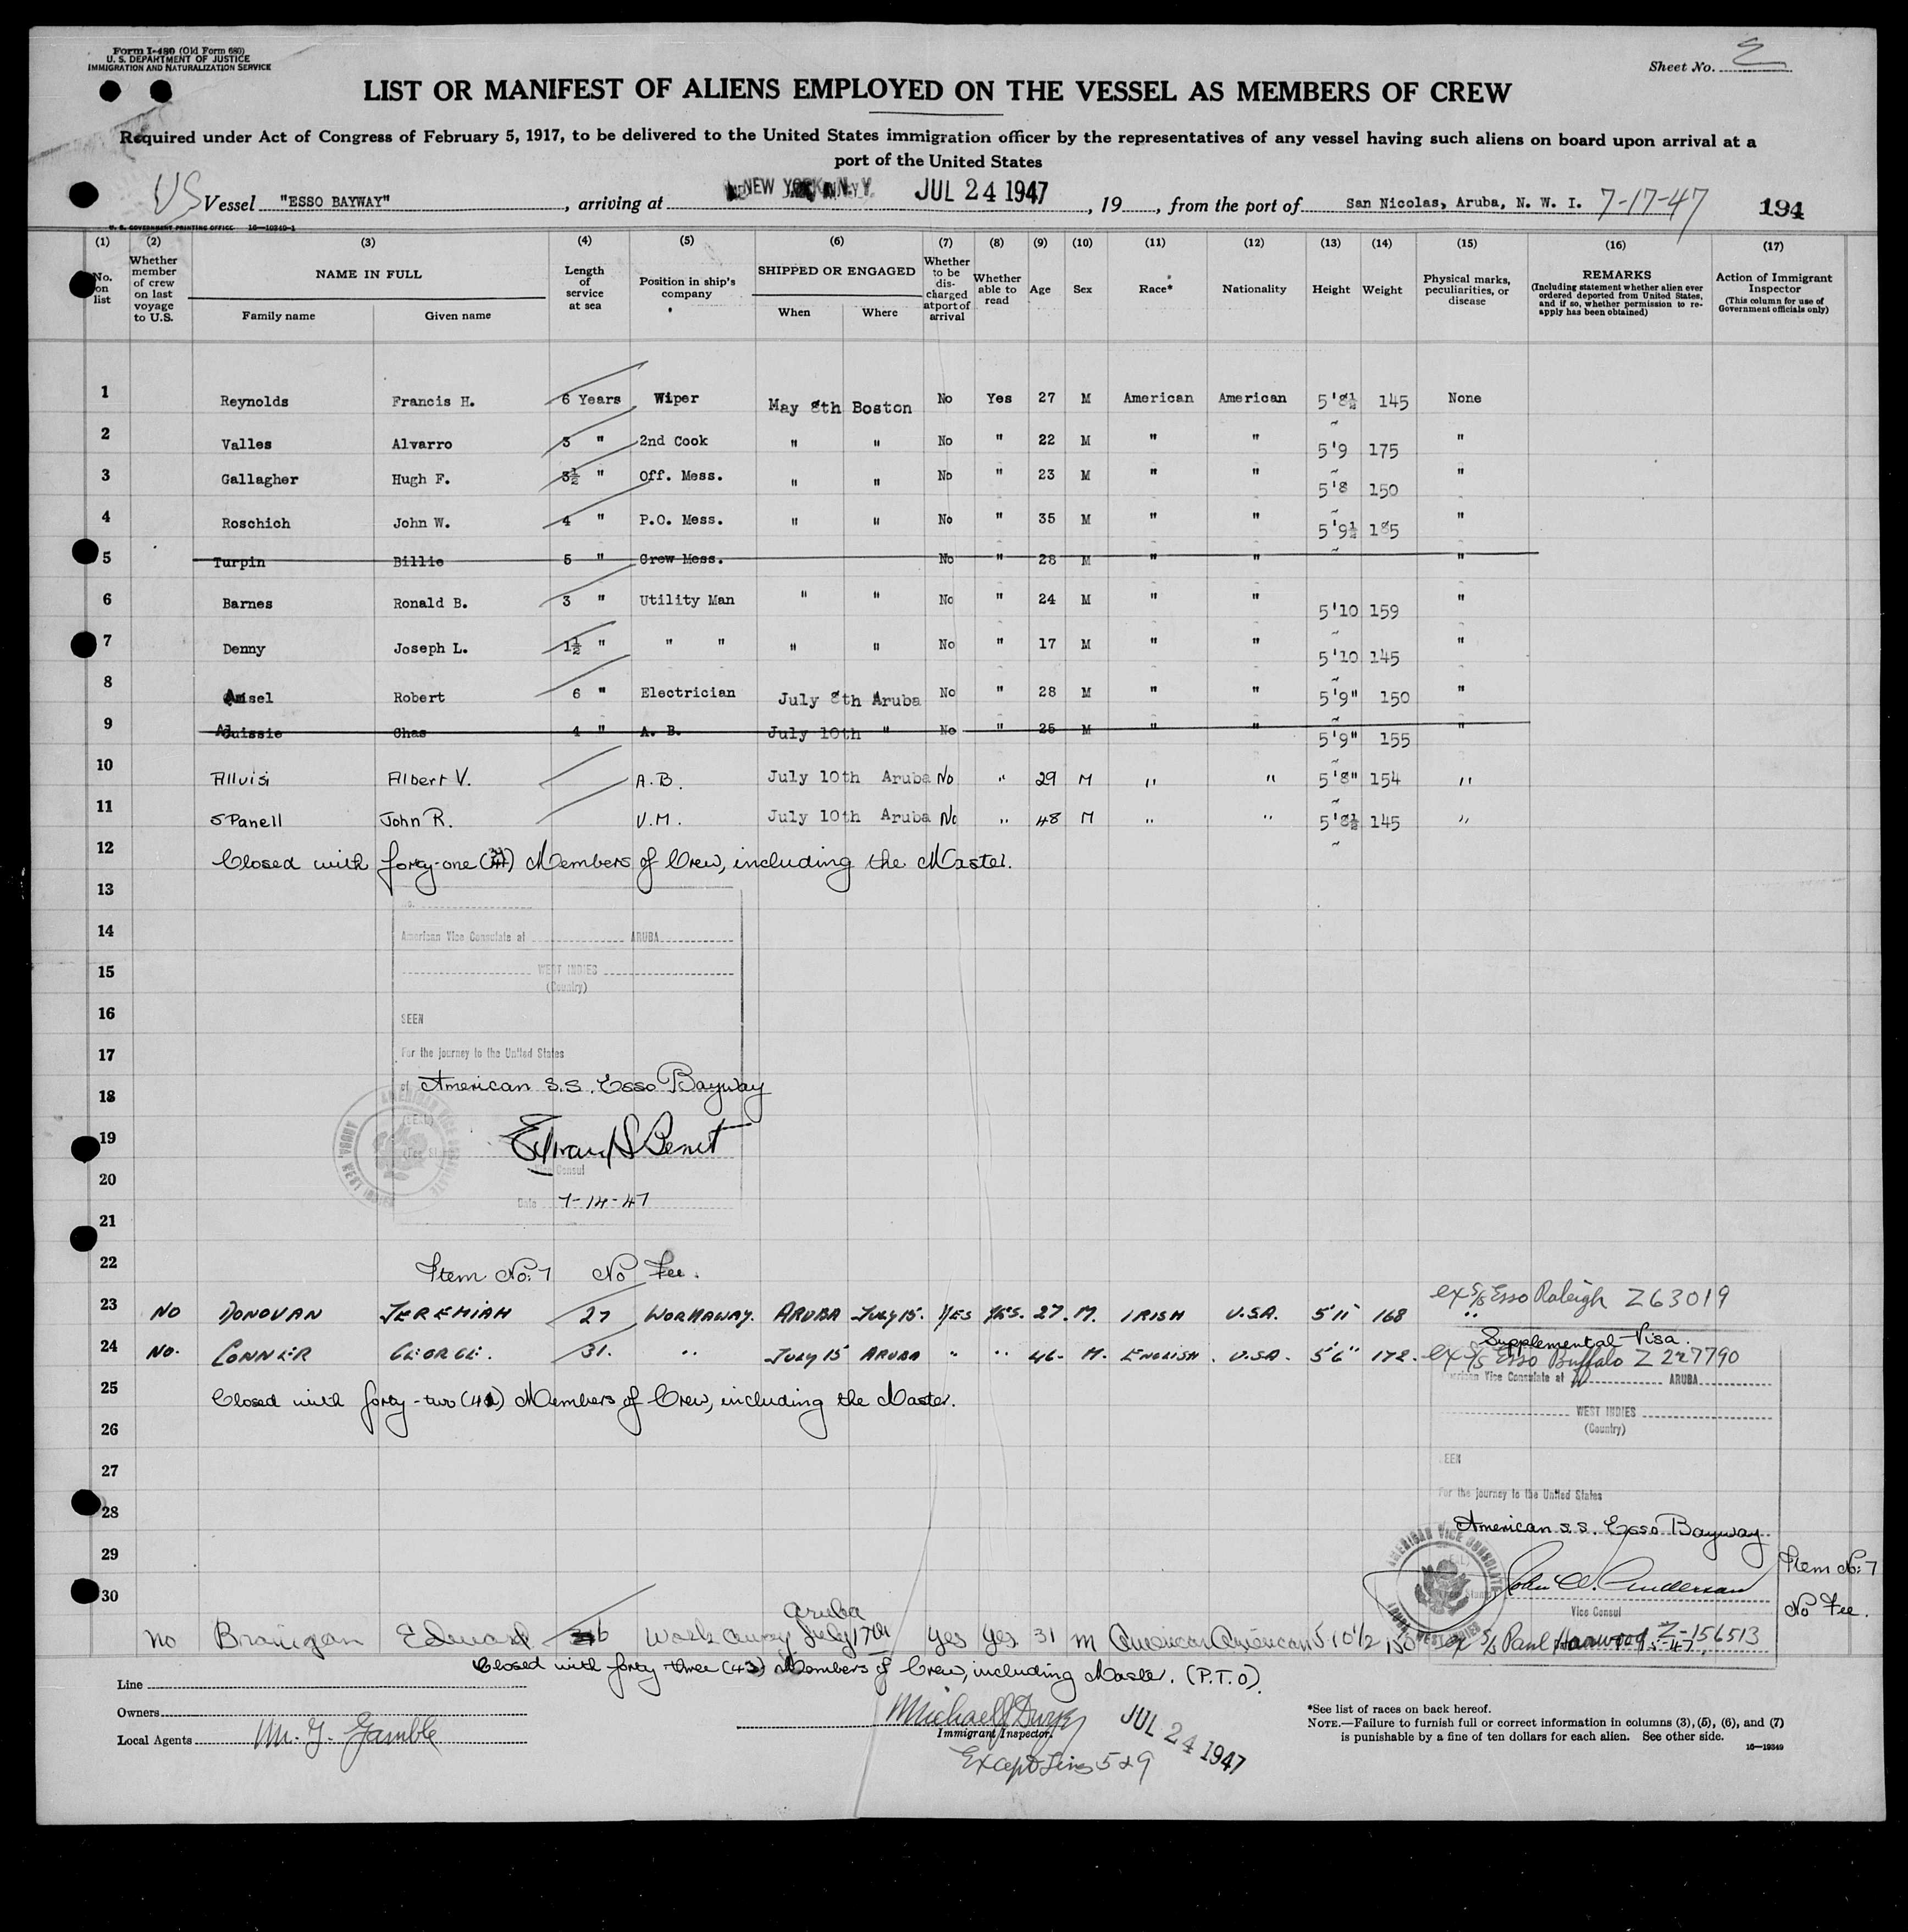 Form I-480 (Old Form 680)
U. S. DEPARTMENT OF JUSTICE
IMMIGRATION AND NATURALIZATION SERVICE
Sheet No.
LIST OR MANIFEST OF ALIENS EMPLOYED ON THE VESSEL AS MEMBERS OF CREW
Required under Act of Congress of February 5, 1917, to be delivered to the United States immigration officer by the representatives of any vessel having such aliens on board upon arrival at a
port of the United States
US Vessel "ESSO BAYWAY", arriving at NEW YORK, N. Y. JUL 24 1947, 19, from the port of San Nicolas, Aruba, N. W. I. 7-17-47 194
U. S. GOVERNMENT PRINTING OFFICE 16—19349-1
(1) (2) (3) (4) (5) (6) (7) (8) (9) (10) (11) (12) (13) (14) (15) (16) (17)
No. on list
Whether member of crew on last voyage to U.S.
NAME IN FULL
Family name Given name
Length of service at sea
Position in ship's company
SHIPPED OR ENGAGED
When Where
Whether to be discharged at port of arrival
Whether able to read
Age
Sex
Race*
Nationality
Height
Weight
Physical marks, peculiarities, or disease
REMARKS
(Including statement whether alien ever ordered deported from United States, and if so, whether permission to re-apply has been obtained)
Action of Immigrant Inspector
(This column for use of Government officials only)
1 Reynolds Francis H. 6 Years Wiper May 8th Boston No Yes 27 M American American 5'8½ 145 None
2 Valles Alvarro 3 " 2nd Cook " " No " 22 M " " 5'9 175 "
3 Gallagher Hugh F. 3½ " Off. Mess. " " No " 23 M " " 5'8 150 "
4 Roschich John W. 4 " P.O. Mess. " " No " 35 M " " 5'9½ 185 "
5 Turpin Billie 5 " Crew Mess. No " 28 M " " "
6 Barnes Ronald B. 3 " Utility Man " " No " 24 M " " 5'10 159 "
7 Denny Joseph L. 1½ " " " " " No " 17 M " " 5'10 145 "
8 Amisel Robert 6 " Electrician July 8th Aruba No " 28 M " " 5'9" 150 "
9 Chas 4 " A. B. July 10th " No " 25 M " " 5'9" 155 "
10 Alluisi Albert V. A.B. July 10th Aruba No " 29 M " " 5'8" 154 "
11 SPanell John R. U.M. July 10th Aruba No " 48 M " " 5'8½ 145 "
12 Closed with forty-one () Members of Crew, including the Master.
13
No.
14 American Vice Consulate at ARUBA
15 WEST INDIES
(Country)
16 SEEN
17 For the journey to the United States
18 of American S.S. Esso Bayway
19
Vice Consul
20 Date 7-14-47
21
22 Item No: 7 No Fee.
ex S/S Esso Raleigh Z63019
23 NO DONOVAN JEREMIAH 27 WORKAWAY. ARUBA JULY 15. YES YES. 27. M. IRISH U.S.A. 5'11" 168 "
Supplemental Visa.
24 No. CONNER GEORGE. 31. " JULY 15 ARUBA " " 46- M. ENGLISH. U.S.A. 5'6" 172. ex S/S Esso Buffalo Z 227790
American Vice Consulate at ARUBA
25 Closed with forty-two (42) Members of Crew, including the Master.
WEST INDIES
26 (Country)
27 SEEN
28 For the journey to the United States
American S.S. Esso Bayway
29
AMERICAN VICE CONSULATE
ARUBA, WEST INDIES
John W. Anderson
Item No: 7
30 Vice Consul
No Fee.
Aruba
No Branigan Edward 6 Work away July 17th Yes Yes 31 M American American 5 10 1/2 150 ex S/S Paul Harwood Z-156513
Closed with forty three (43) Members of Crew, including Master. (P.T.O).
Line
Owners
Local Agents M. J. Gamble
Michael J Dwyer
Immigrant Inspector.
JUL 24 1947
Except Lines 5 & 9
*See list of races on back hereof.
NOTE.—Failure to furnish full or correct information in columns (3), (5), (6), and (7)
is punishable by a fine of ten dollars for each alien. See other side.
16—19349